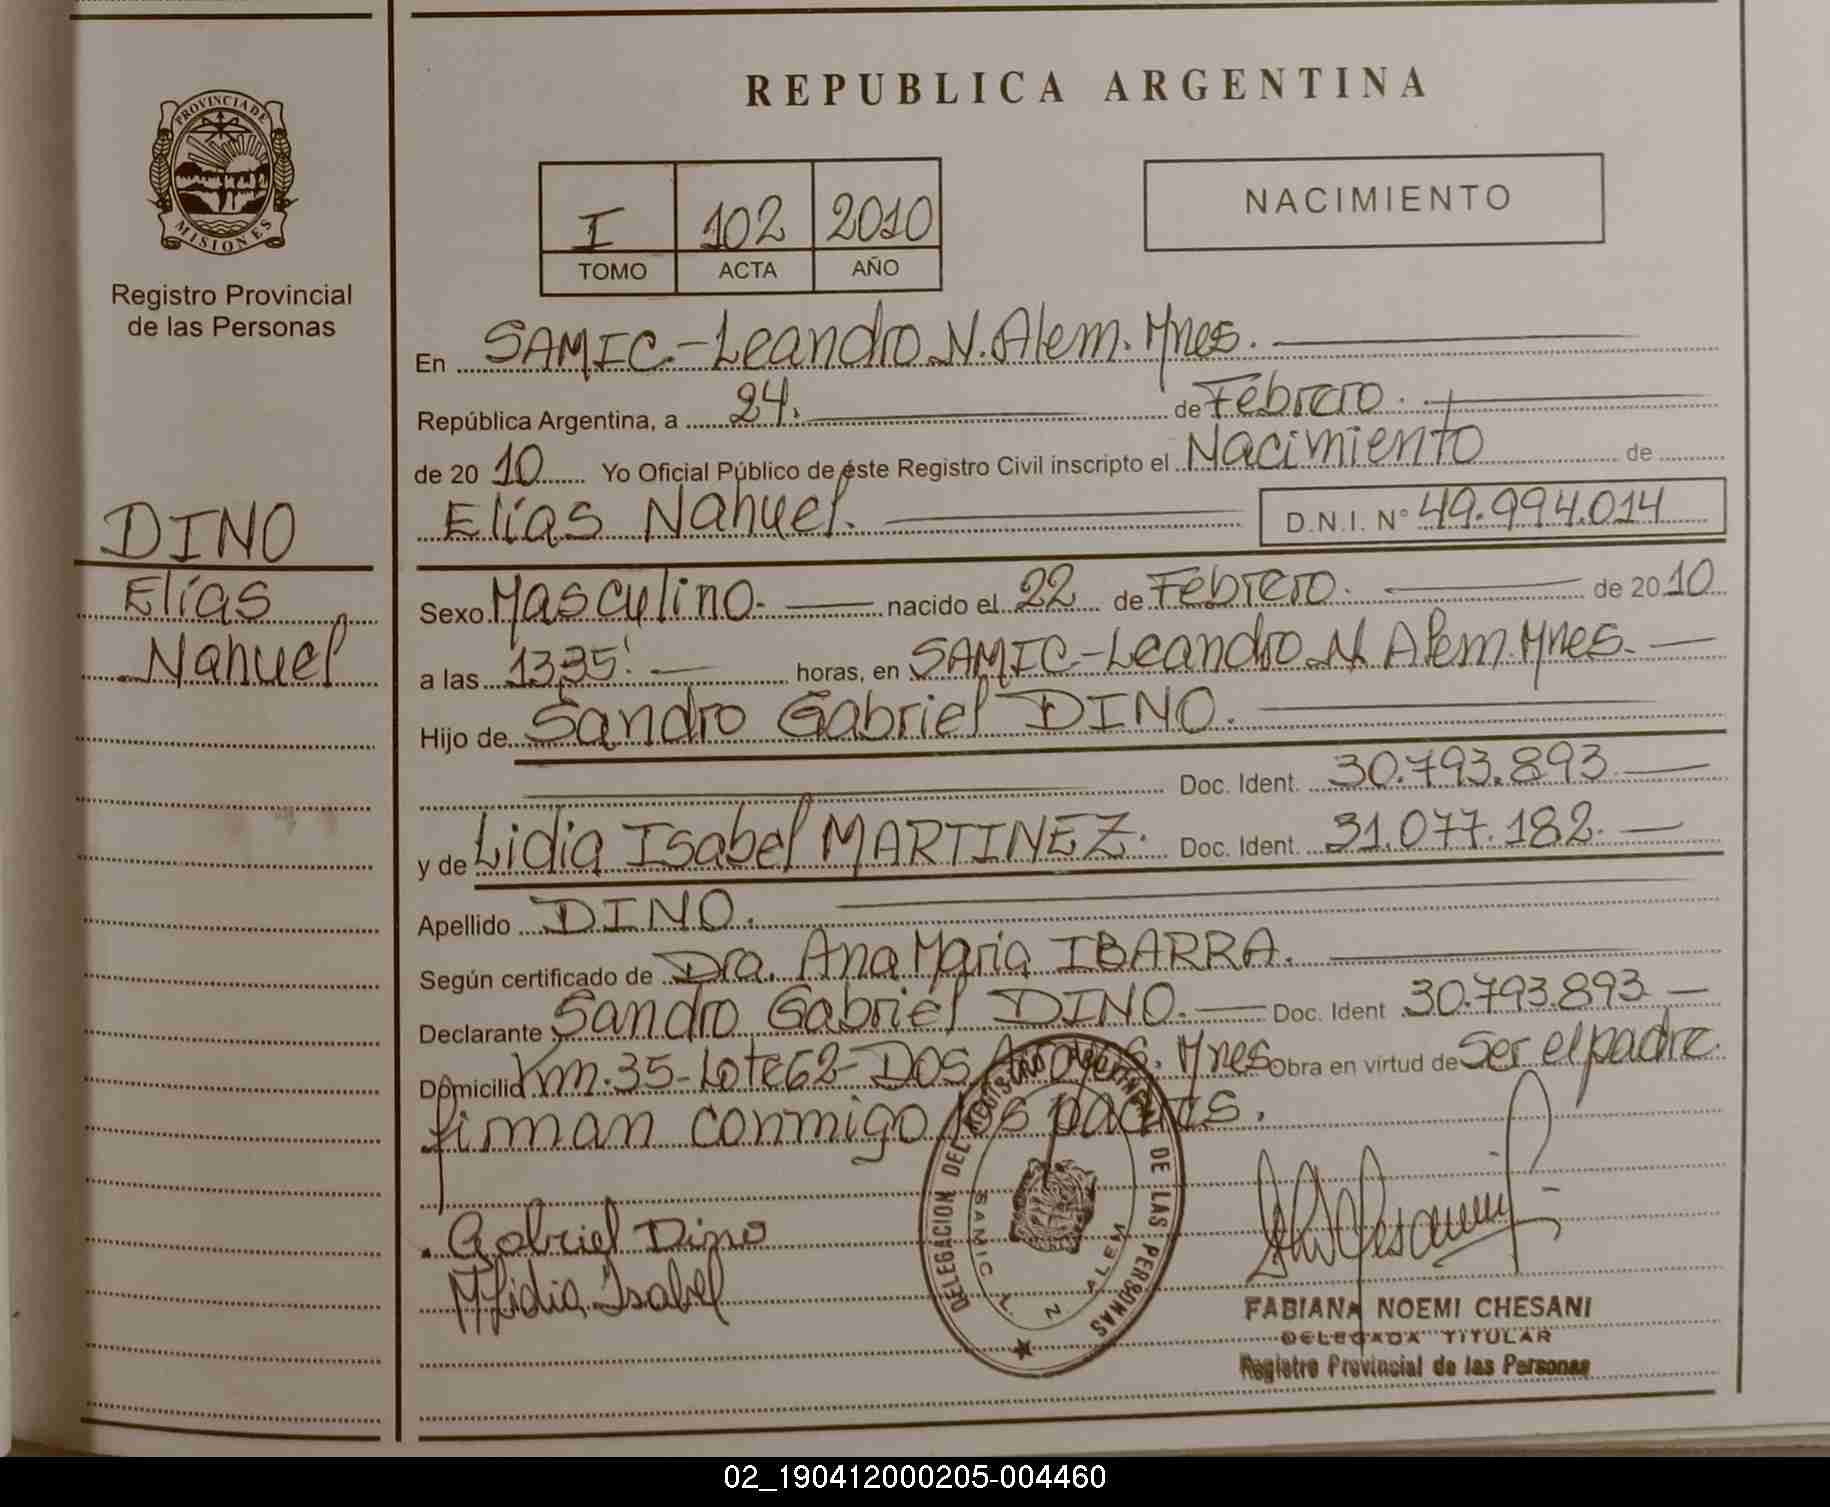 REPUBLICA ARGENTINA
PROVINCIA DE
MISIONES
Registro Provincial
de las Personas
I 102 2010
TOMO ACTA AÑO
NACIMIENTO
En SAMIC.-Leandro N. Alem. Mnes.
República Argentina, a 24. de Febrero.
de 20 10 Yo Oficial Público de éste Registro Civil inscripto el Nacimiento de
Elías Nahuel. D.N.I. N° 49.994.014
DINO
Elías
Nahuel
Sexo Masculino. nacido el 22 de Febrero. de 2010
a las 13,35' horas, en SAMIC-Leandro N. Alem. Mnes.
Hijo de Sandro Gabriel DINO.
Doc. Ident. 30.793.893
y de Lidia Isabel MARTINEZ. Doc. Ident. 31.077.182.
Apellido DINO.
Según certificado de Dra. Ana Maria IBARRA.
Declarante Sandro Gabriel DINO. Doc. Ident 30.793.893
Domicilio Km.35-Lote 62-Dos Arroyos. Mnes Obra en virtud de Ser el padre.
firman conmigo los padres.
Gabriel Dino
M Lidia Isabel
DELEGACION DEL REGISTRO DE LAS PERSONAS
SAMIC L. N ALEM
FABIANA NOEMI CHESANI
DELEGADA TITULAR
Registro Provincial de las Personas
02_190412000205-004460